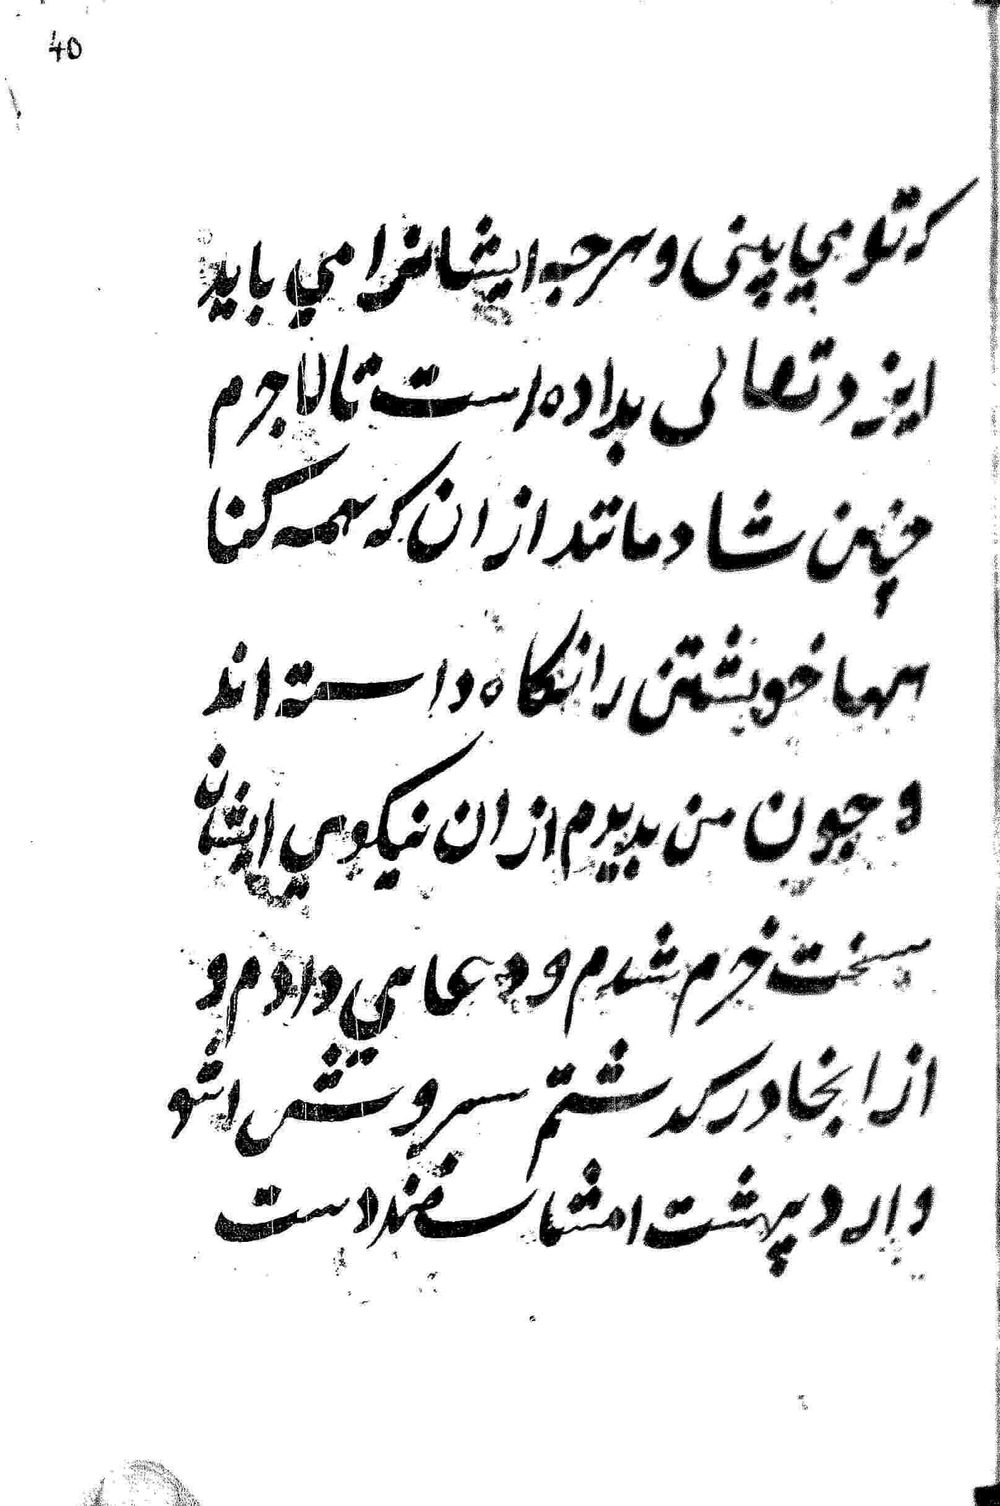 40
که تو می پینی و هرجه ایشانرا می باید
ایزد تعالی بداده است تا لاجرم
چنین شادمانند از ان که همه کنا
هها خویشتن را نکاه داسته اند
و جون من بدیدم از ان نیکوی ایشان
سخت خرم شدم و دعا می دادم و
از انجا درکدشتم سروش اشو
واردیبهشت امشاسفند دست